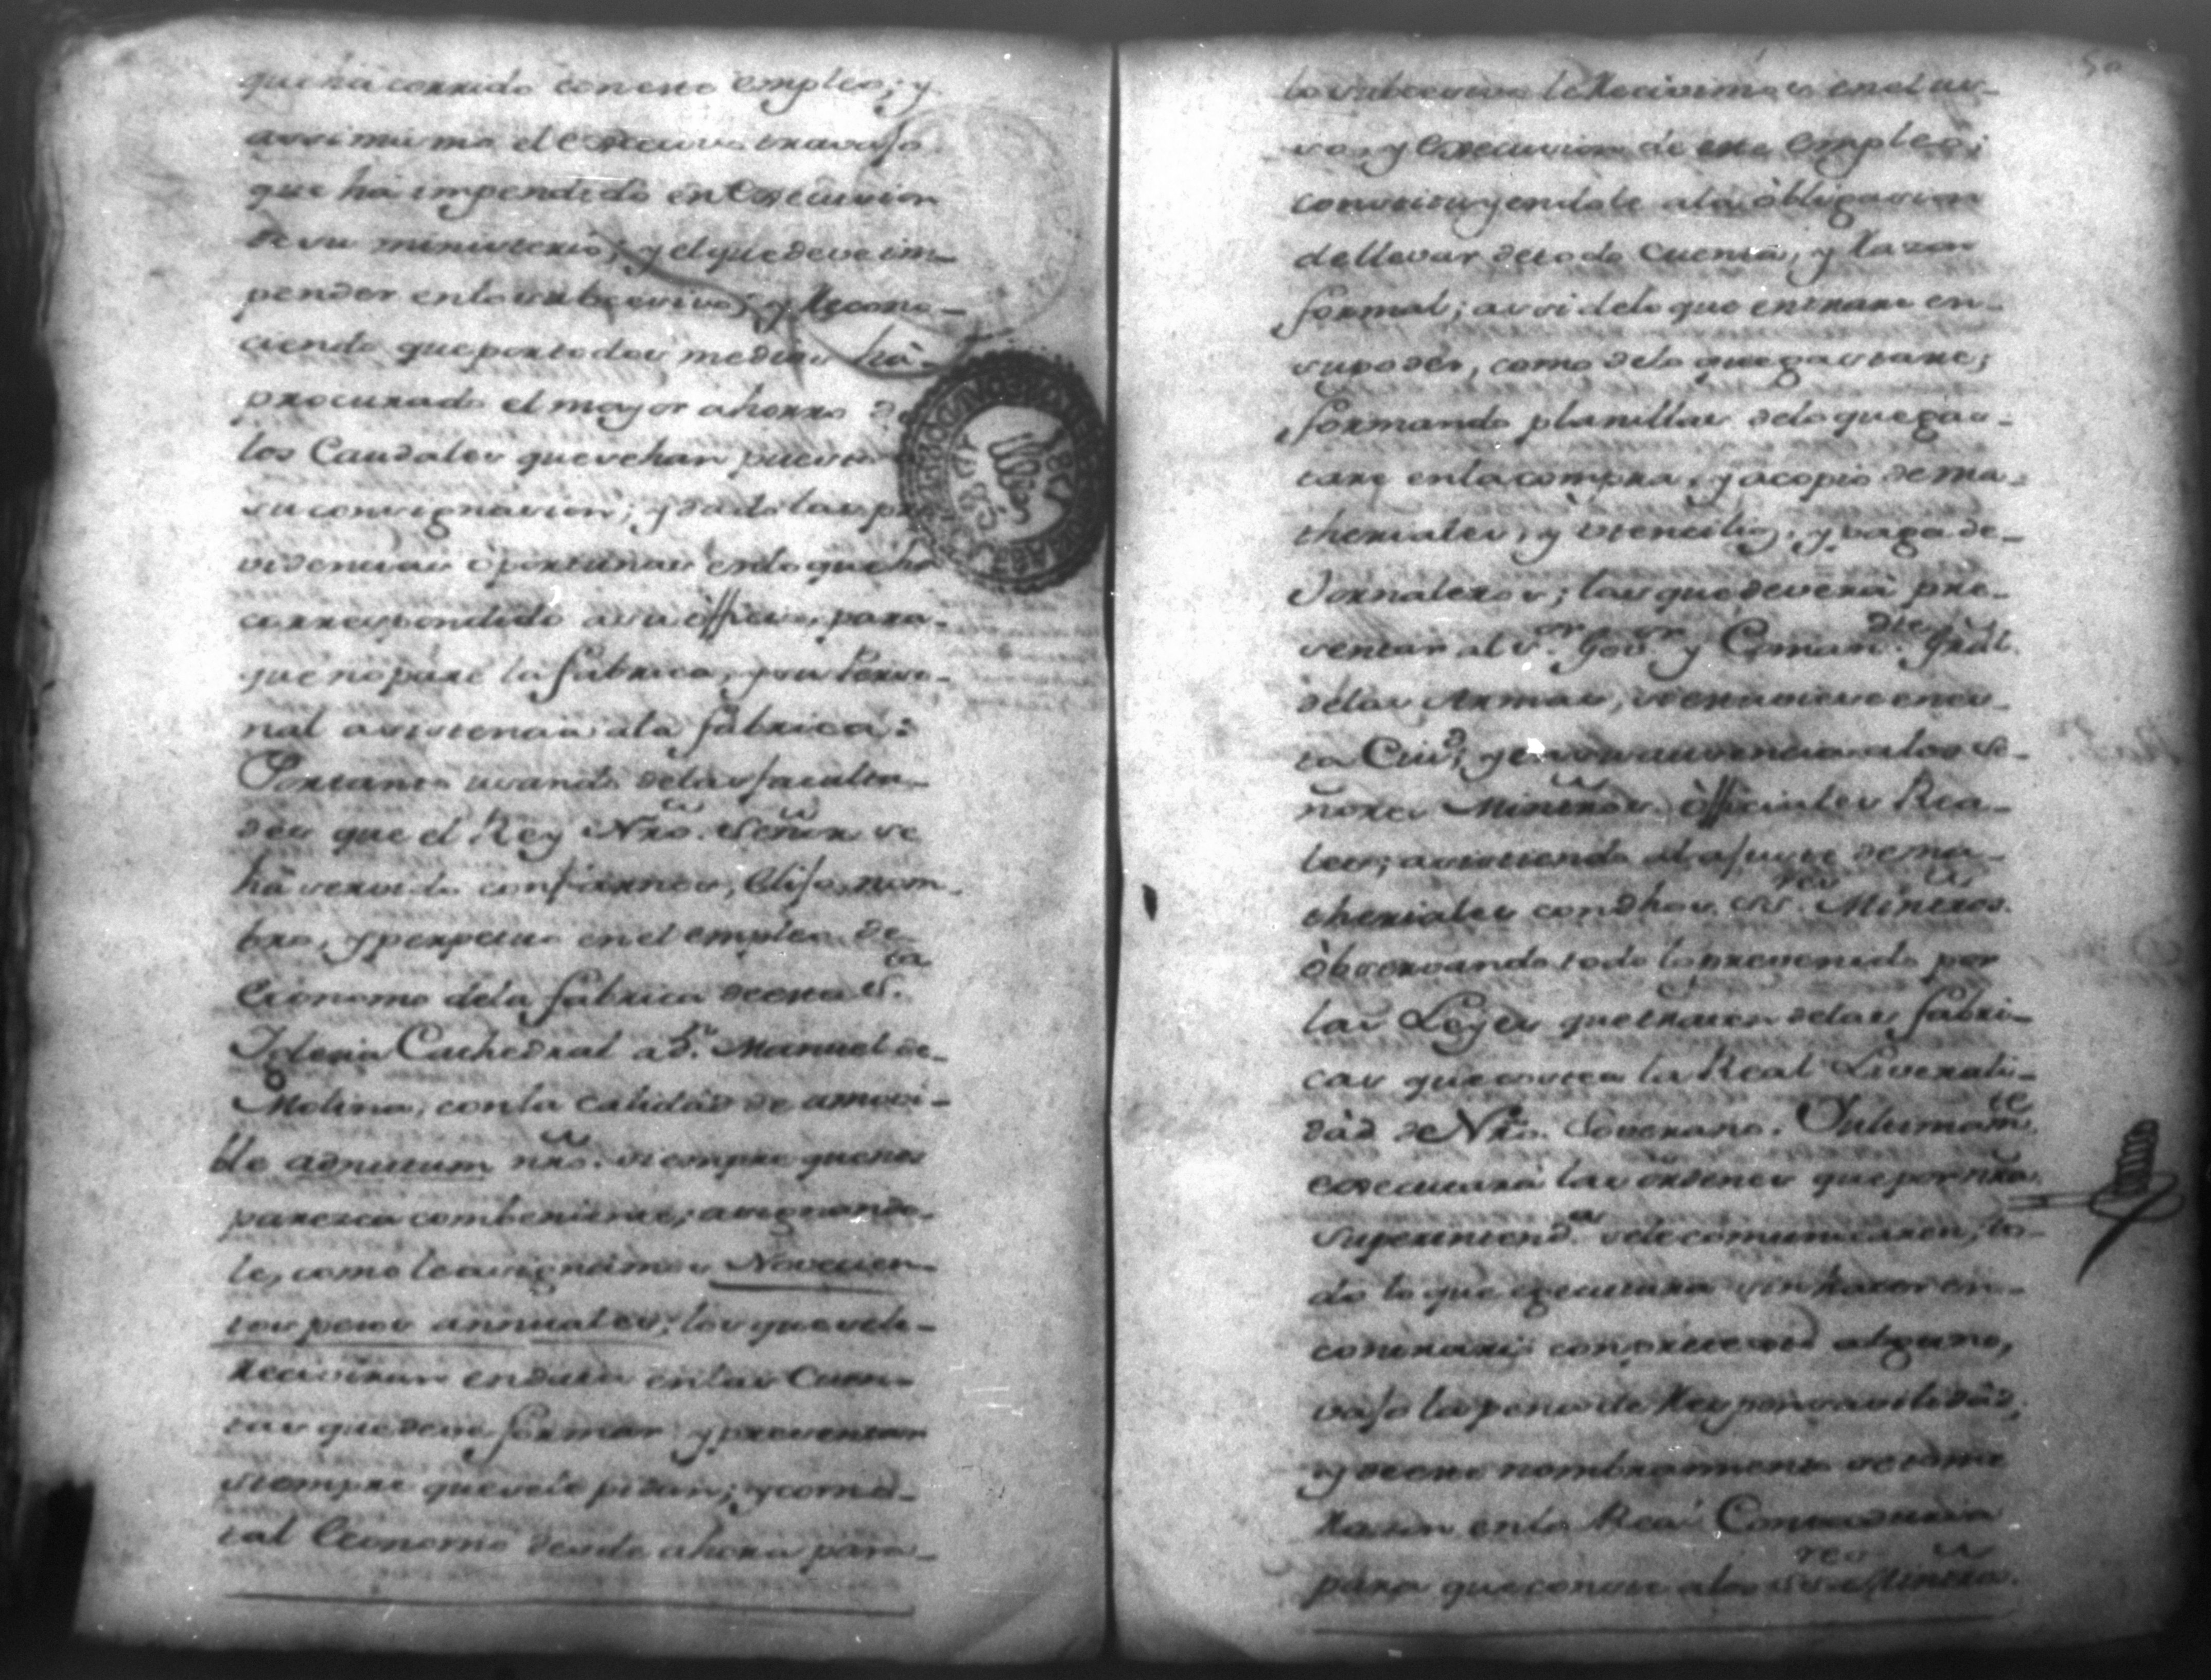 que hà corrido con este empleo; y
assi mismo el excesivo travajo
que hà impendido en execusion
de su ministerio; y el que deve im-
pender en lo subcesivo; y Recono-
ciendo que por todos medios hà
procurado el mayor ahorro de
los Caudales que se han puesto
su consignasion; y dado las pro
videncias òportunas en lo que hà
correspondido a su òfficio, para
que no pare la fabrica, y su Perso-
nal assistencia a la fabrica:
Portanto usando de las faculta-
des que el Rey Nro. Señor se
hà servido confiarnos, Elijo, nom
bro, y perpetuo en el empleo de
Economo de la fabrica de esta S.ta
Iglesia Cathedral a D.n Manuel de
Molina, con la calidad de amovi-
ble adnutum nro. siempre que nos
paresca combeniente; assignando
le, como le assignamos Novecien
tos pesos annuales; los que se le
Recivirán en data en las Cuen-
tas que deve formar y presentar
siempre que se le pidan; y como
tal Economo desde ahora para
lo subcesivo le Recivimos en el us-
so, y execusion de este empleo;
constituyendole a la òbligasion
de llevar de todo cuenta, y Razon
formal; assi de lo que entrare en
su poder, como de lo que gastare;
formando planillas de lo que gas-
tare en la compra, y acopio de ma-
theriales, y Utencilios, y paga de
Jornaleros; las que deverà pre-
sentar al S.or Gov.or y Coman.dte Gràl.
de las Armas, si estuviese en es-
ta Ciu.d; y en su ausencia a los Se-
ñores Ministros òfficiales Rea-
les; assistiendo al ajuste de ma-
theriales con dhos. S.res Ministros.
òbservando todo lo prevenido por
las Leyes que tratan de las fabri-
cas que costea la Real Liverali-
dàd de Nro. Soverano. Ultimam.te
executarà las òrdenes que por nra.
superintend.ca se le comunicaren, to-
do lo que executara sin hacer en
contrario con pretexto alguno,
vajo la pena de Responsavilidàd;
y de este nombramiento se tome
Razon en la Real Contaduria
para que conste a los S.res Ministros.